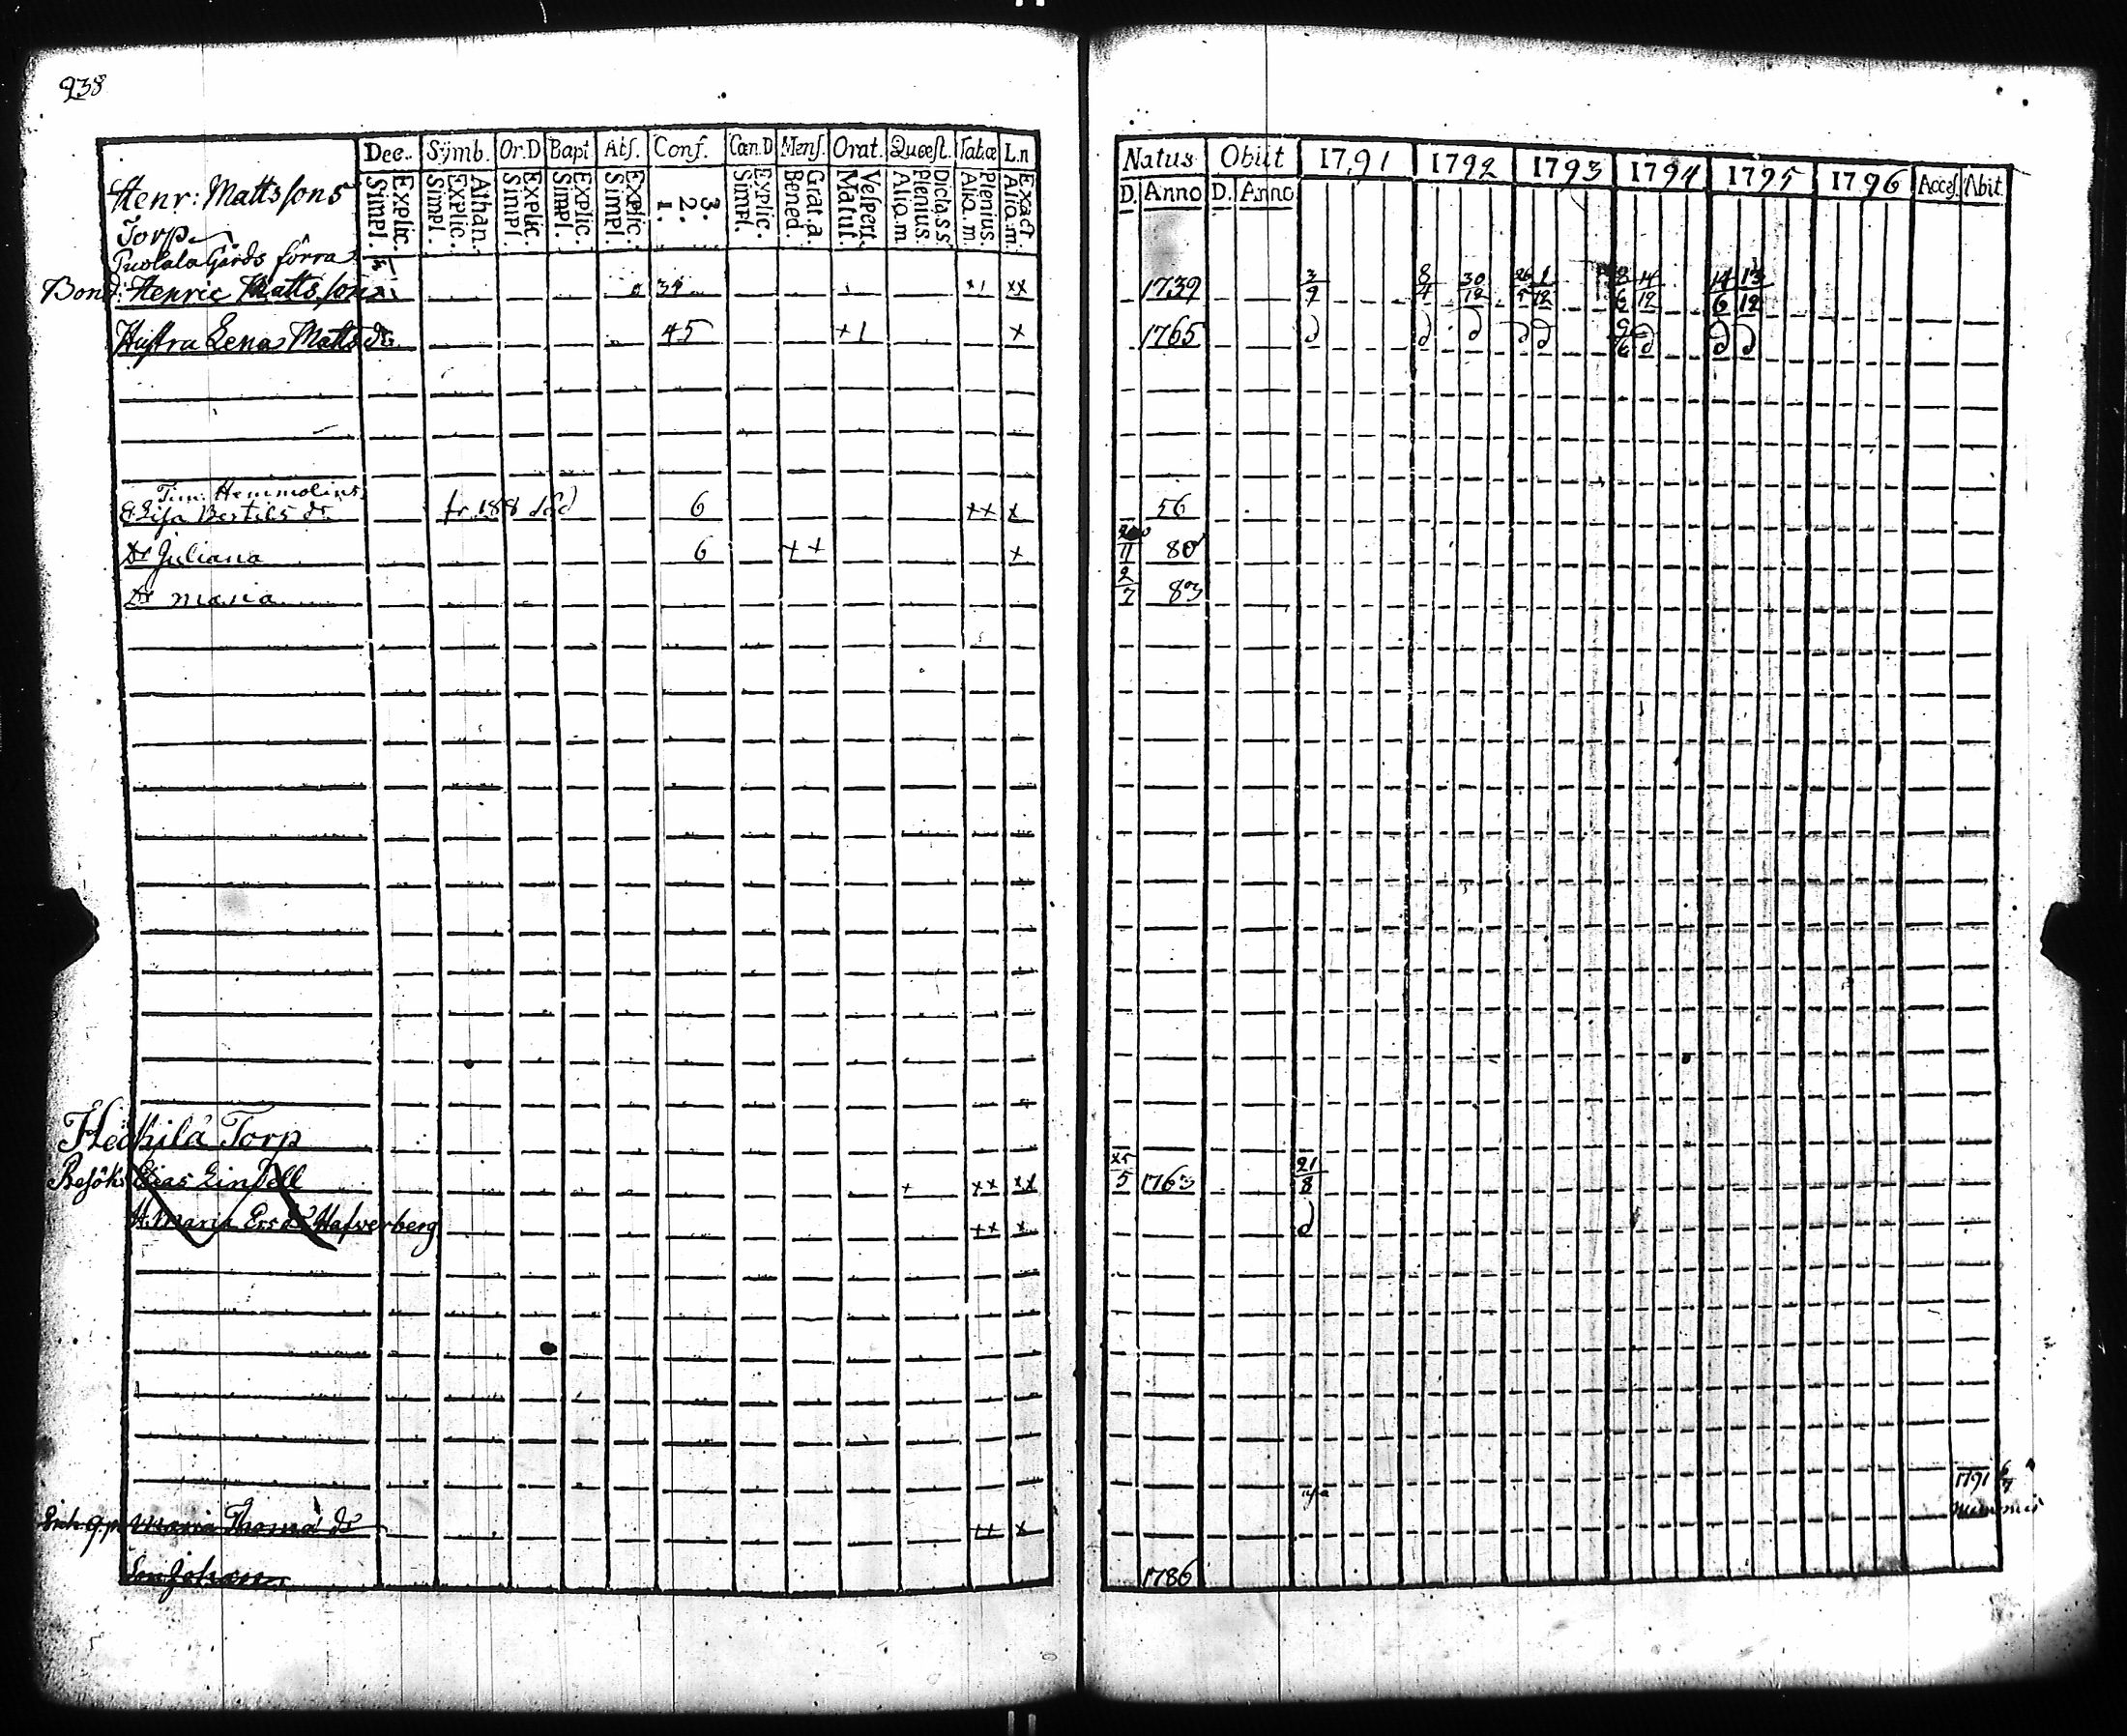 238
Dec. Symb. Or.D Bapt Abs. Conf. Cœn.D Mens. Orat. Quæst. Tabœ L.n
Simpl. Explic. Simpl. Explic. Athan. Simpl. Explic. Simpl. Explic. Simpl. Explic. 1. 2. 3. Simpl. Explic. Bened. Grat.a. Matut. Vespert. Alio.m Plenius. Dicta.s.s. Alio.m. Plenius. Alio.m. Exact.
Natus Obiit 1791 1792 1793 1794 1795 1796 Acces. Abit.
D. Anno D. Anno
Henr: Mattssons
Torp
Puolala Gårds förra
Bond: Henric Mattsson 34 x1 xx 1739 3/9 8/4 30/12 26/5 1/12 8/6 14/12 14/6 13/12
Hustru Lena Matts dr 45 +1 x 1765 d d d d d 9/6 d d d
Tim: Hemmolins
E Lisa Bertils dr fr. 188 6 xx x 56
Dr Juliana 6 ++ x 11 80
Dr Maria 2/7 83
Heikkilä Torp
Besök: Elias Lindell + xx xx 25/5 1763 21/8
H. Maria Ers dr Hafverberg xx x d
1791 6/7
Nummis
Maria Thoma dr ++ x
Son Johan 1786